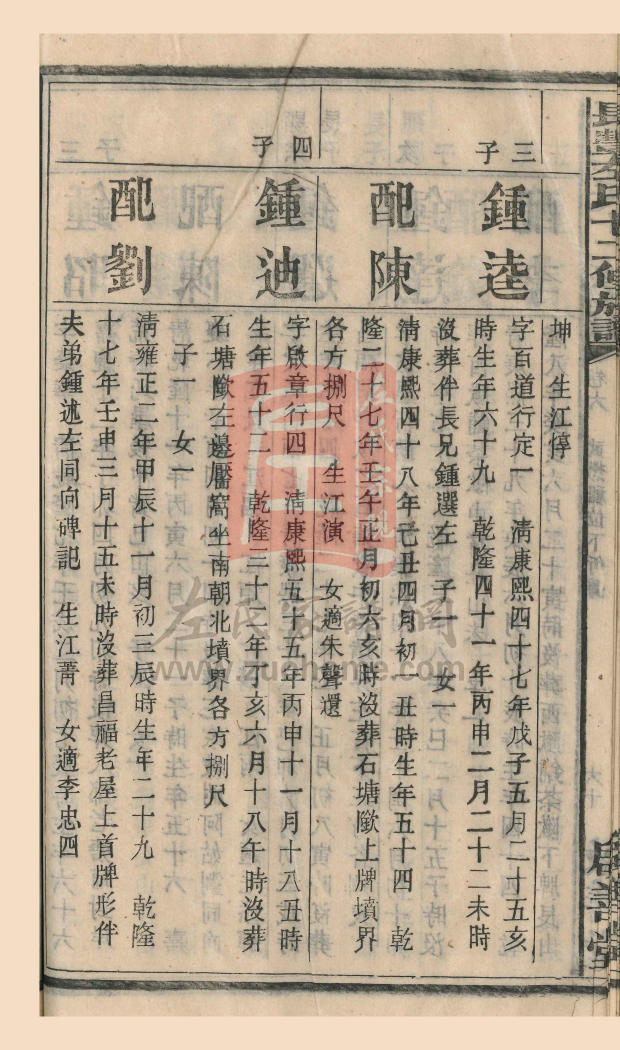 坤 生江惇
三子
鍾逵
字百道行定一 淸康熙四十七年戊子五月二十五亥
時生年六十九 乾隆四十一年丙申二月二十二未時
沒葬伴長兄鍾選左 子一 女一
配陳
淸康熙四十八年己丑四月初一丑時生年五十四 乾
隆二十七年壬午正月初六亥時沒葬石塘歐上牌墳界
各方捌尺 生江演 女適朱聲還
四子
鍾迪
字啟章行四 淸康熙五十五年丙申十一月十八丑時
生年五十二 乾隆三十二年丁亥六月十八午時沒葬
石塘歐左邊屬窩坐南朝北墳界各方捌尺
子一 女一
配劉
淸雍正二年甲辰十一月初三辰時生年二十九 乾隆
十七年壬申三月十五未時沒葬昌福老屋上首牌形伴
夫弟鍾述左同向碑記 生江菁 女適李忠四
左氏家譜網
www.zuohome.com